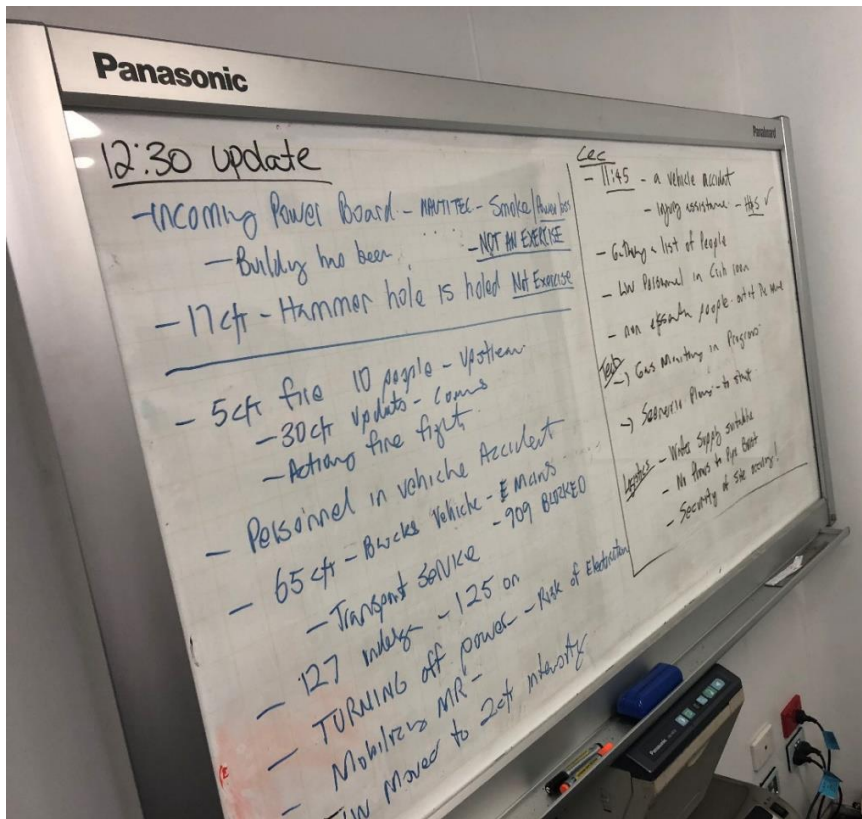 Panasonic
Panaboard
12:30 update
-Incoming Power Board - NAUTITEC - Smoke/Power loss
- Building has been
- NOT AN EXERCISE
- 17 c/t - Hammer hole is holed Not Exercise
- 5 c/t fire 10 people - Upstream
- 30 c/t update - Comms
- Actions fire fight.
- Personnel in vehicle Accident
- 65 c/t - Blocks Vehicle - Mains
- Transport Service - 909 BLOCKED
- 127 - 125 on
- TURNING off power - Risk of
- Mobilizing MR -
Moved to 2 c/t intensity
CEC
- 11:45 - a vehicle accident
- injury assistance - H&S ✓
- Gathering a list of People
- in Crib room
- non people out of the
Tech
-> Gas Monitoring in Progress
-> Scenario Plans - to start
Logistics - Water Supply suitable
- No Plans to Pipe Burst
- Security of Site !
Panasonic